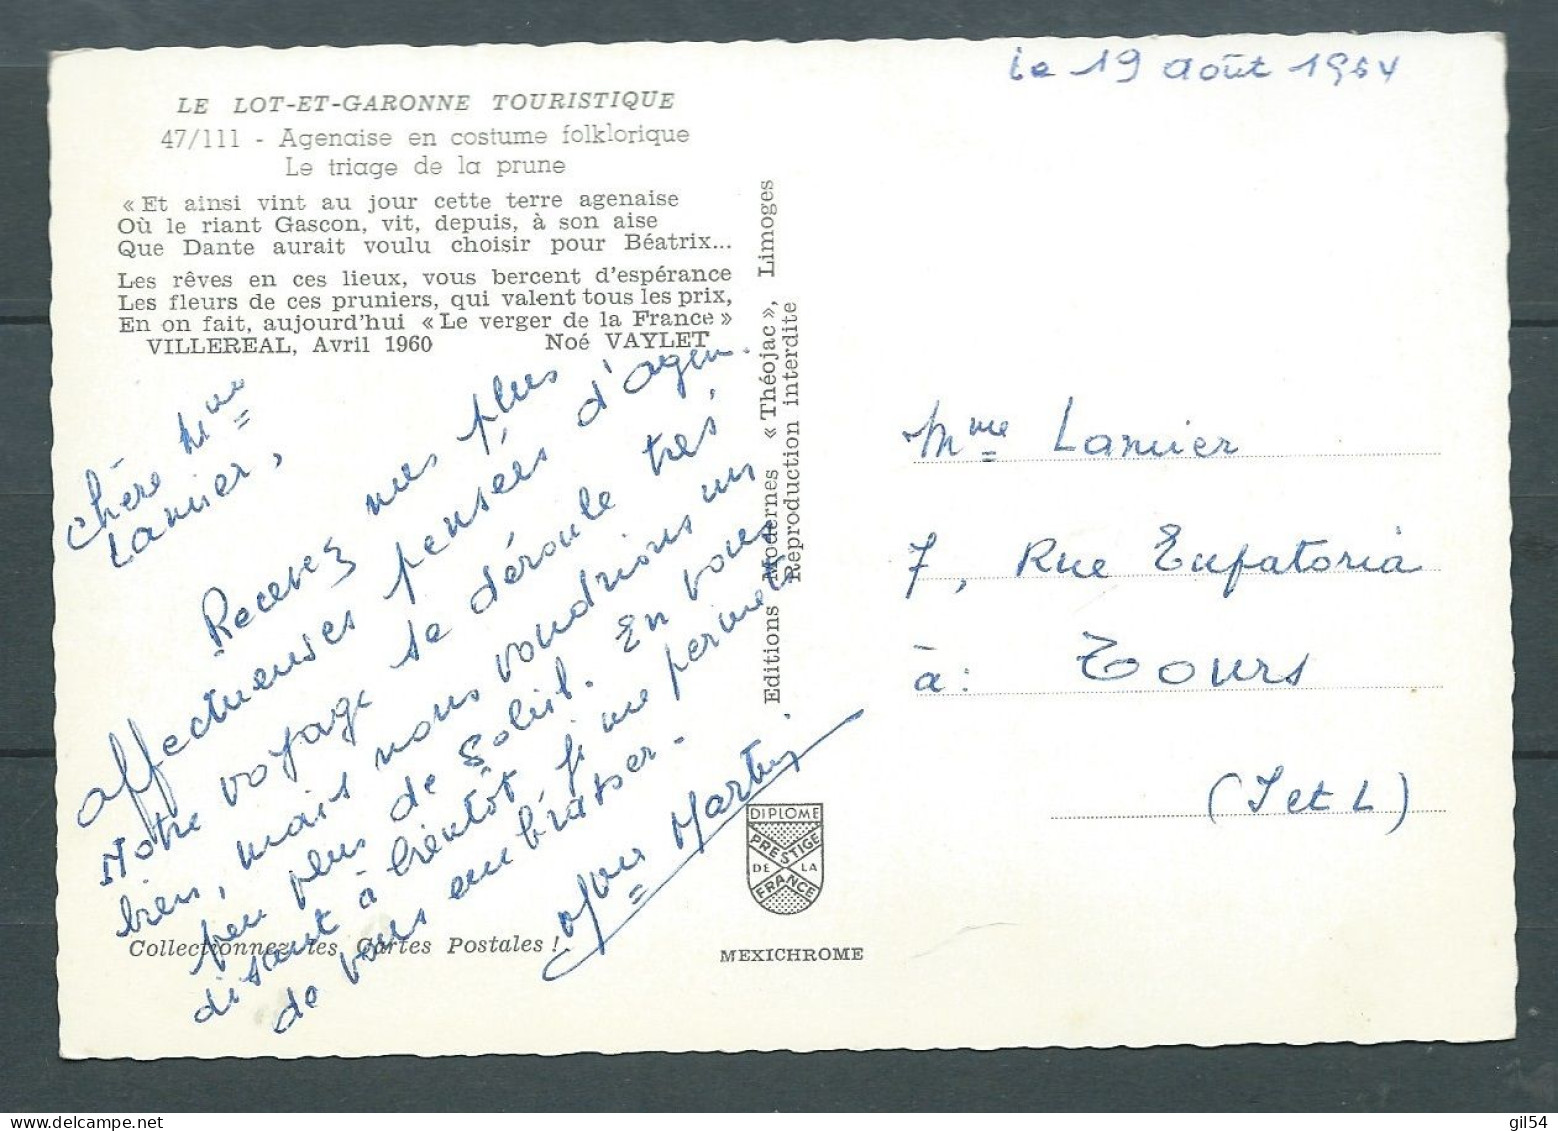 le 19 août 1964
LE LOT-ET-GARONNE TOURISTIQUE
47/111 - Agenaise en costume folklorique
Le triage de la prune
« Et ainsi vint au jour cette terre agenaise
Où le riant Gascon, vit, depuis, à son aise
Que Dante aurait voulu choisir pour Béatrix...
Les rêves en ces lieux, vous bercent d'espérance
Les fleurs de ces pruniers, qui valent tous les prix,
En on fait, aujourd'hui « Le verger de la France »
VILLEREAL, Avril 1960 Noé VAYLET
Chère Mme
Lanier,
Recevez mes plus
affectueuses pensées d'agen.
Notre voyage se déroule très
bien, mais nous voudrions un
peu plus de Soleil. En vous
disant à bientôt je me permets
de vous embrasser.
Mme Martin
Collectionnez les Cartes Postales !
Editions Modernes « Théojac », Limoges
Reproduction interdite
DIPLOME
PRESTIGE
DE LA
FRANCE
MEXICHROME
Mme Lanier
7, Rue Eupatoria
à : Tours
(I et L)
gil54